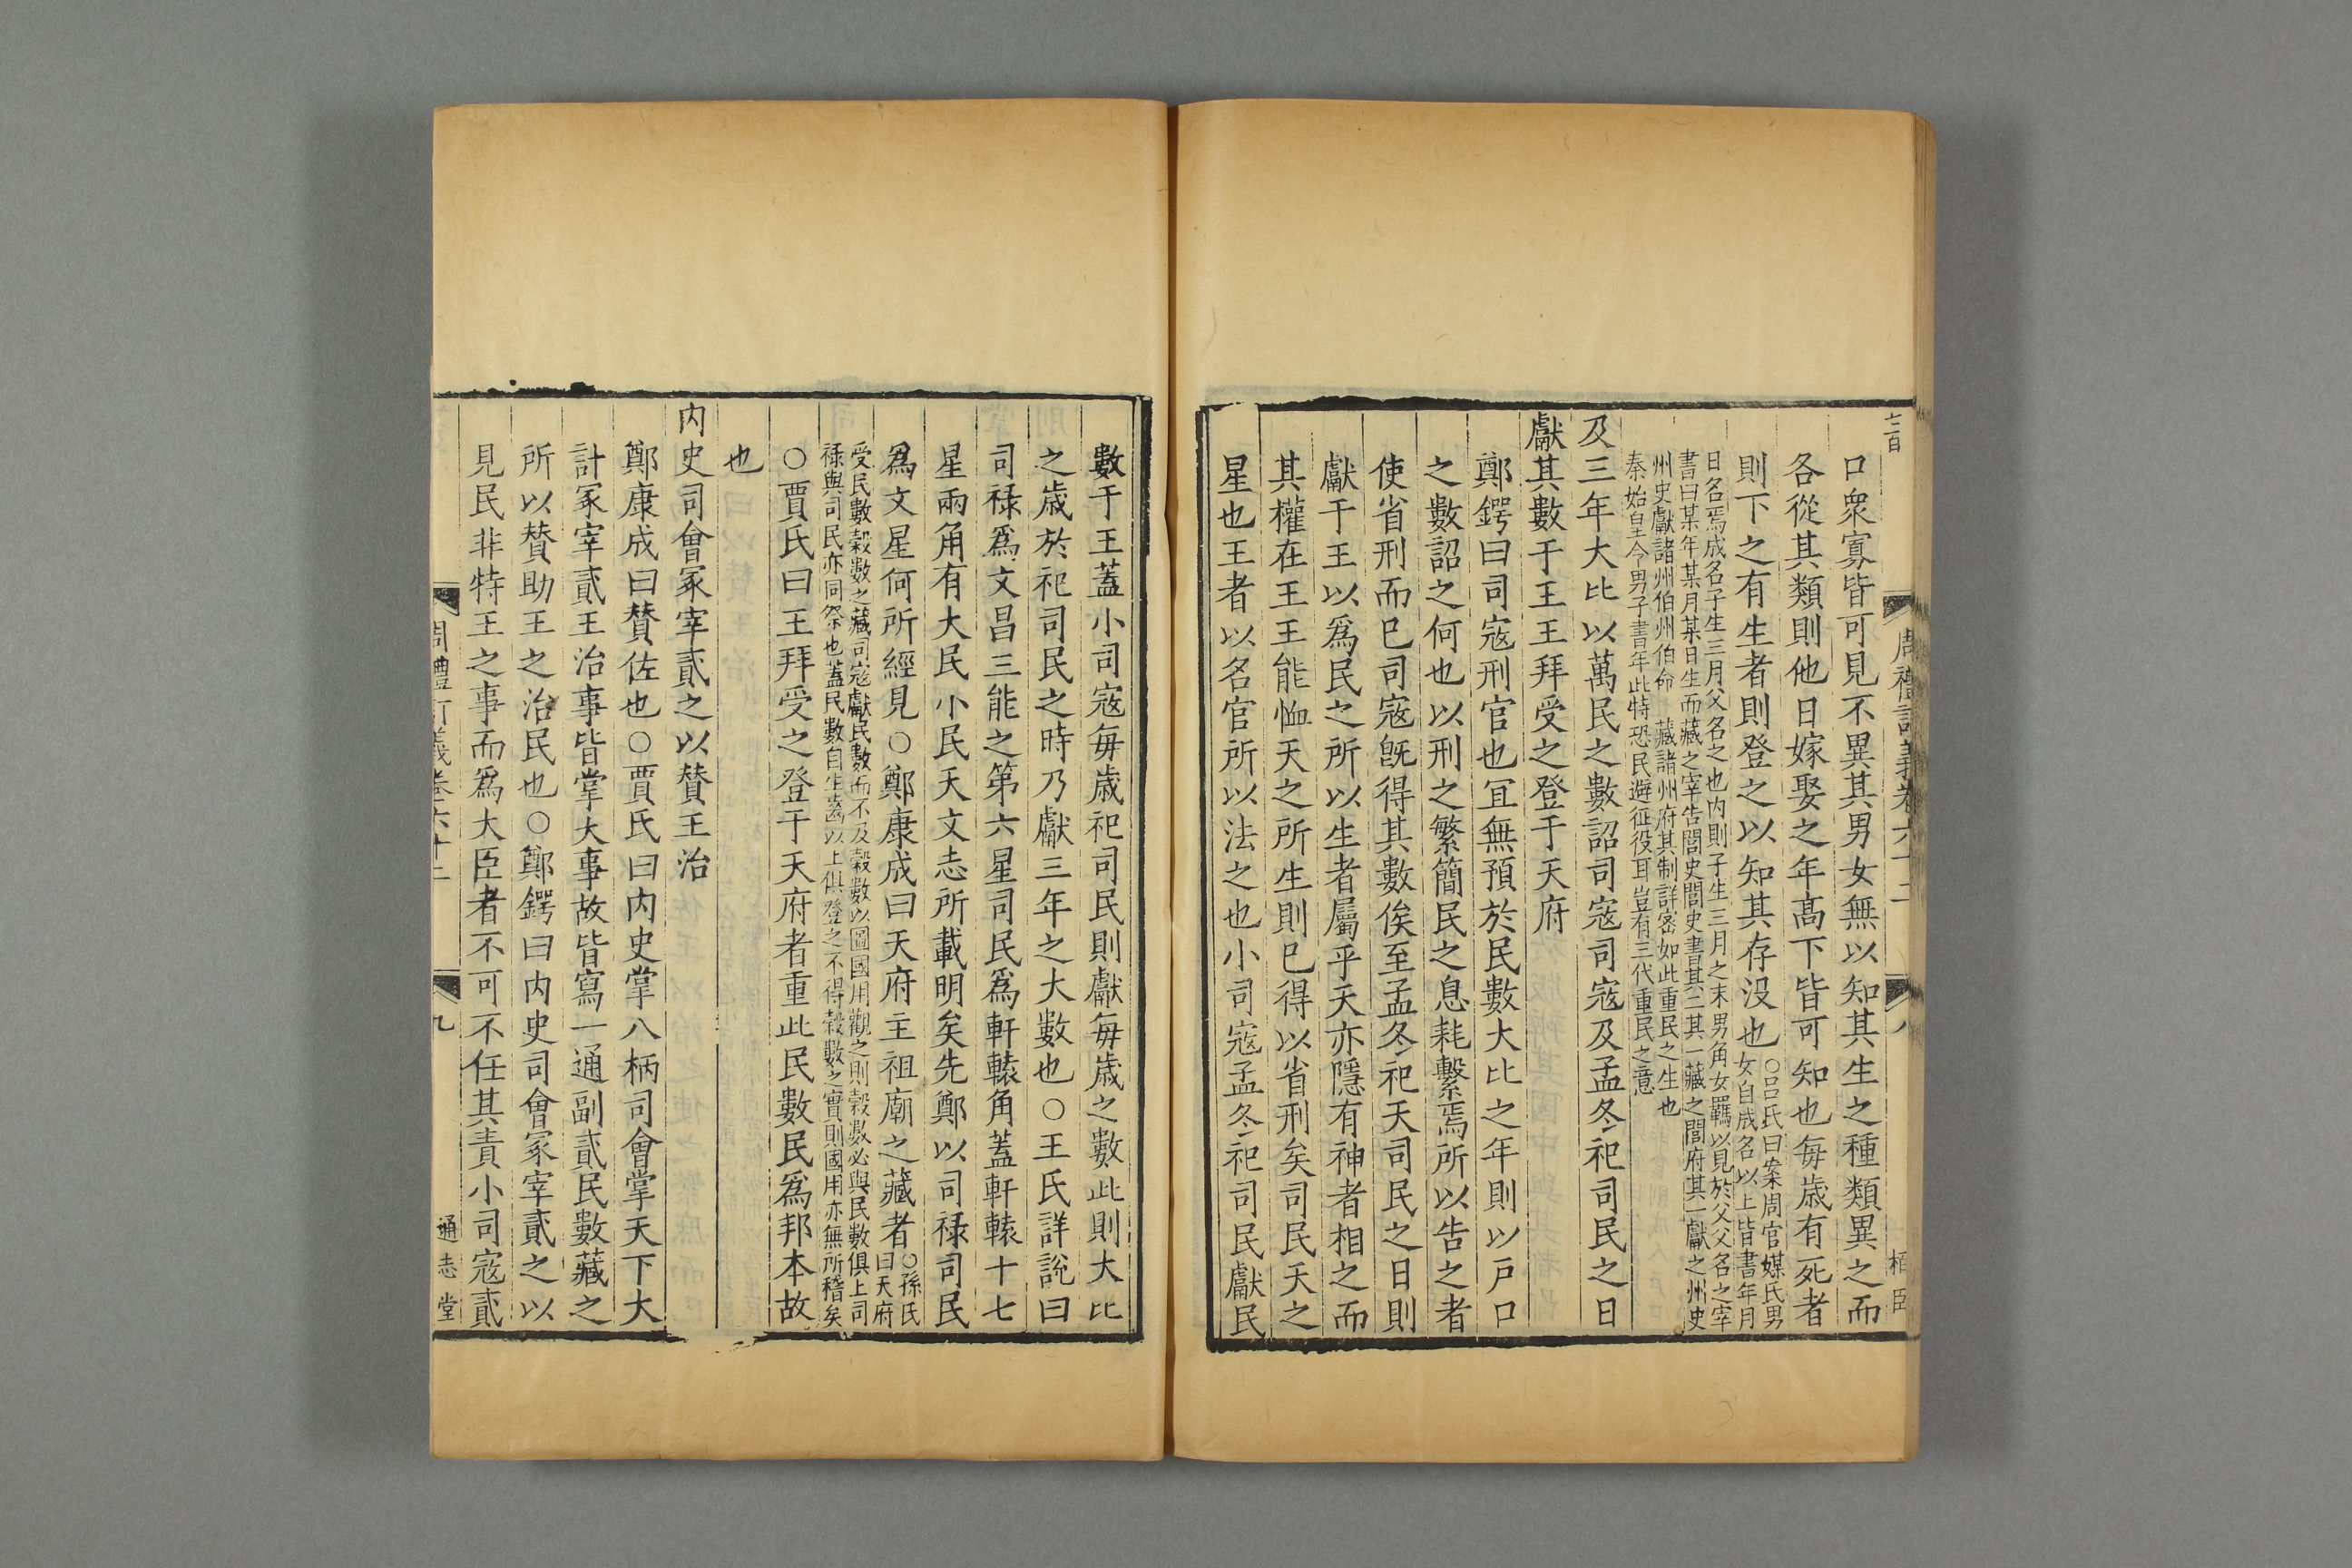 口衆寡皆可見不異其男女無以知其生之種類異之而
各從其類則他日嫁娶之年高下皆可知也毎歳有死者
則下之有生者則登之以知其存没也○吕氏曰案周官媒氏男
女自成名以上皆書年月
日名焉成名子生三月父名之也内則子生三月之末男角女羈以見於父父名之宰
書曰某年某月某日生而藏之宰告閭史閭史書其二其一藏之閭府其一獻之州史
州史獻諸州伯州伯命 藏諸州府其制詳密如此重民之生也
秦始皇今男子書年此特恐民避征役耳豈有三代重民之意
及三年大比以萬民之數詔司寇司寇及孟冬祀司民之日
獻其數于王王拜受之登于天府
鄭鍔曰司寇刑官也冝無預於民數大比之年則以戸口
之數詔之何也以刑之繁簡民之息耗繫焉所以告之者
使省刑而已司寇旣得其數俟至孟冬祀天司民之日則
獻于王以爲民之所以生者屬乎天亦隱有神者相之而
其權在王王能恤天之所生則已得以省刑矣司民天之
星也王者以名官所以法之也小司寇孟冬祀司民獻民
周禮訂義卷六十二
八
數于王蓋小司寇毎歳祀司民則獻毎歳之數此則大比
之歳於祀司民之時乃獻三年之大數也○王氏詳說曰
司禄爲文昌三能之第六星司民爲軒轅角蓋軒轅十七
星兩角有大民小民天文志所載明矣先鄭以司禄司民
爲文星何所經見○鄭康成曰天府主祖廟之藏者○孫氏
曰天府
受民數穀數之藏司寇獻民數而不及穀數以圖國用觀之則穀數必與民數俱上司
禄與司民亦同祭也蓋民數自生齒以上俱登之不得穀數之實則國用亦無所稽矣
○賈氏曰王拜受之登于天府者重此民數民爲邦本故
也
内史司會冢宰貳之以賛王治
鄭康成曰賛佐也○賈氏曰内史掌八柄司會掌天下大
計冢宰貳王治事皆掌大事故皆寫一通副貳民數藏之
所以賛助王之治民也○鄭鍔曰内史司會冢宰貳之以
見民非特王之事而爲大臣者不可不任其責小司寇貳
周禮訂義卷六十二
九
通志堂